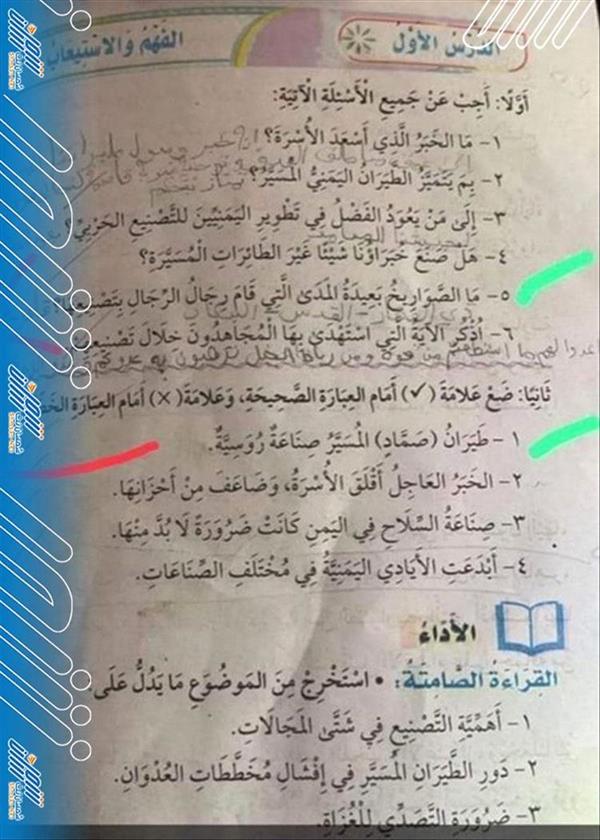 الدَّرْسُ الأَوَّلُ
الفَهْمُ وَالاسْتِيعَابُ
أَوَّلًا: أَجِبْ عَنْ جَمِيعِ الْأَسْئِلَةِ الْآتِيَةِ:
١- مَا الخَبَرُ الَّذِي أَسْعَدَ الأُسْرَةَ؟
٢- بِمَ يَتَمَيَّزُ الطَّيَرَانُ اليَمَنِيُّ المُسَيَّرُ؟
٣- إِلَى مَنْ يَعُودُ الفَضْلُ فِي تَطْوِيرِ اليَمَنِيِّينَ للتَّصْنِيعِ الحَرْبِيِّ؟
٤- هَلْ صَنَعَ خُبَرَاؤُنَا شَيْئًا غَيْرَ الطَّائِرَاتِ الْمُسَيَّرَةِ؟
٥- مَا الصَّوَارِيخُ بَعِيدَةُ المَدَى الَّتِي قَامَ رِجَالُ الرِّجَالِ بِتَصْنِيعِهَا؟
٦- اُذْكُرِ الآيَةَ الَّتِي اسْتَهْدَى بِهَا الْمُجَاهِدُونَ خِلَالَ تَصْنِيعِهِمْ
ثَانِيًا: ضَعْ عَلَامَةَ (✓) أَمَامَ العِبَارَةِ الصَّحِيحَةِ، وَعَلَامَةَ (×) أَمَامَ العِبَارَةِ
١- طَيَرَانُ (صَمَّاد) المُسَيَّرُ صِنَاعَةٌ رُوسِيَّةٌ.
٢- الخَبَرُ العَاجِلُ أَقْلَقَ الأُسْرَةَ، وَضَاعَفَ مِنْ أَحْزَانِهَا.
٣- صِنَاعَةُ السِّلَاحِ فِي اليَمَنِ كَانَتْ ضَرُورَةً لَا بُدَّ مِنْهَا.
٤- أَبْدَعَتِ الأَيَادِي اليَمَنِيَّةُ فِي مُخْتَلَفِ الصِّنَاعَاتِ.
الأَدَاءُ
القِرَاءَةُ الصَّامِتَةُ: • اسْتَخْرِجْ مِنَ المَوْضُوعِ مَا يَدُلُّ عَلَى
١- أَهَمِّيَّةِ التَّصْنِيعِ فِي شَتَّى المَجَالَاتِ.
٢- دَورِ الطَّيَرَانِ المُسَيَّرِ فِي إِفْشَالِ مُخَطَّطَاتِ العُدْوَانِ.
٣- ضَرُورَةَ التَّصَدِّي لِلْغُزَاةِ.